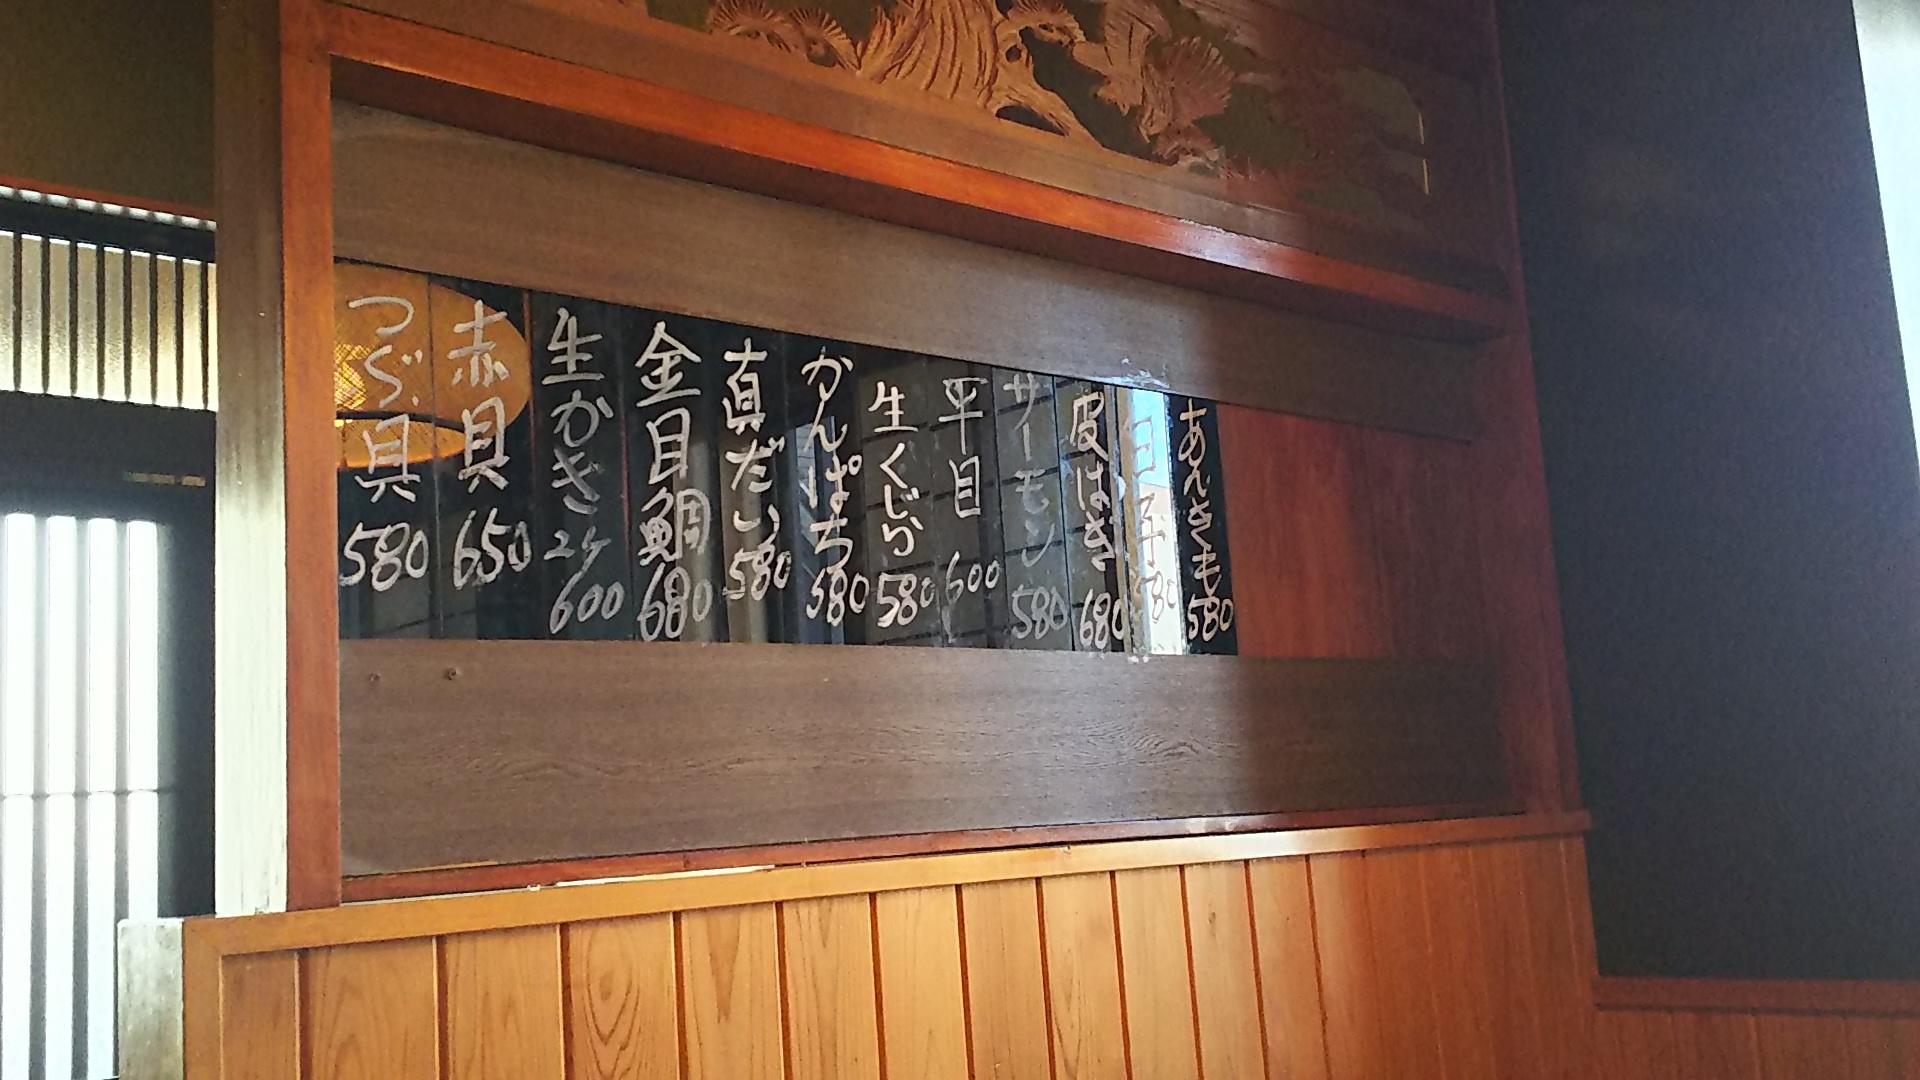 あんきも 580
白子 580
皮はぎ 680
サーモン 580
平目 600
生くじら 580
かんぱち 580
真だい 580
金目鯛 680
生かき 2ケ 600
赤貝 650
つぶ貝 580